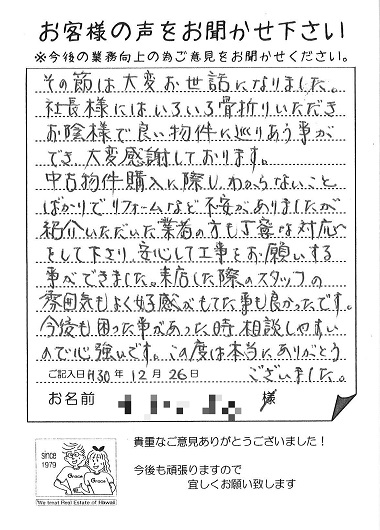 お客様の声をお聞かせ下さい
※今後の業務向上の為ご意見をお聞かせください。
その節は大変お世話になりました。
社長様にはいろいろ骨折りいただき
お陰様で良い物件に巡りあう事が
でき、大変感謝しております。
中古物件購入に際し、わからないこと
ばかりでリフォームなど不安がありましたが
紹介いただいた業者の方も丁寧な対応を
として下さり、安心して工事をお願いする
事ができました。来店した際のスタッフの
雰囲気もよく好感がもてた事も良かったです。
今後も困った事があった時、相談しやすい
ので心強いです。この度は本当にありがとう
ございました。
ご記入日 H30年 12月 26日
お名前 様
貴重なご意見ありがとうございました！
今後も頑張りますので
宜しくお願い致します
since
1979
Grace
Grace
We treat Real Estate of Hawaii